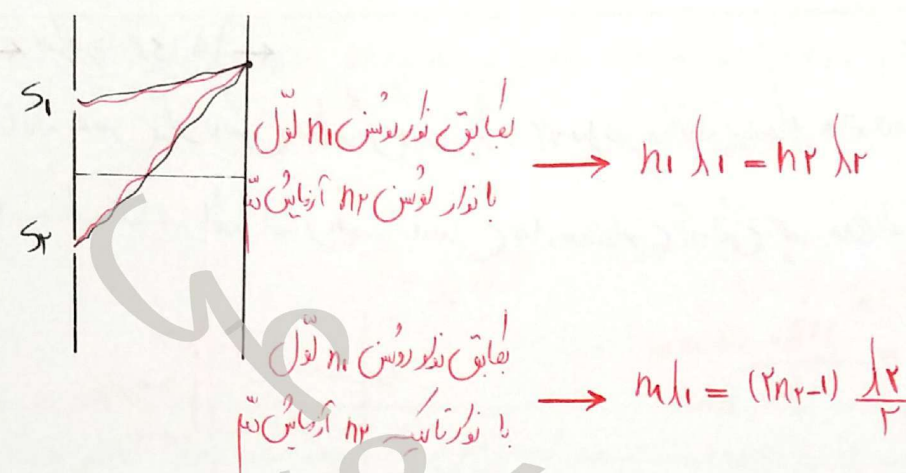 S۱
S۲
تطابق نوار روشن n۱ اول
با نوار روشن n۲ آزمایش دوم
→ n۱ λ۱ = n۲ λ۲
تطابق نوار روشن n۱ اول
با نوار تاریک n۲ آزمایش دوم
→ n۱λ۱ = (۲n۲-۱) λ۲/۲